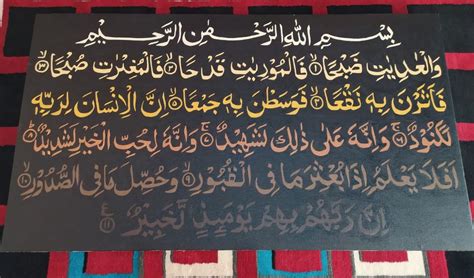 بِسْمِ اللهِ الرَّحْمٰنِ الرَّحِيْمِ
وَالْعٰدِيٰتِ ضَبْحًا ۙ‏﴿۱﴾ فَالْمُوْرِيٰتِ قَدْحًا ۙ‏﴿۲﴾ فَالْمُغِيْرٰتِ صُبْحًا ۙ‏﴿۳﴾
فَاَثَرْنَ بِهٖ نَقْعًا ۙ‏﴿۴﴾ فَوَسَطْنَ بِهٖ جَمْعًا ۙ‏﴿۵﴾ اِنَّ الْاِنْسَانَ لِرَبِّهٖ
لَكَنُوْدٌ ۚ‏﴿۶﴾ وَاِنَّهٗ عَلٰى ذٰلِكَ لَشَهِيْدٌ ۚ‏﴿۷﴾ وَاِنَّهٗ لِحُبِّ الْخَيْرِ لَشَدِيْدٌ ؕ‏﴿۸﴾
اَفَلَا يَعْلَمُ اِذَا بُعْثِرَ مَا فِى الْقُبُوْرِ ۙ‏﴿۹﴾ وَحُصِّلَ مَا فِى الصُّدُوْرِ ۙ‏﴿۱۰﴾
اِنَّ رَبَّهُمْ بِهِمْ يَوْمَئِذٍ لَّخَبِيْرٌ ‏﴿۱۱﴾ ع